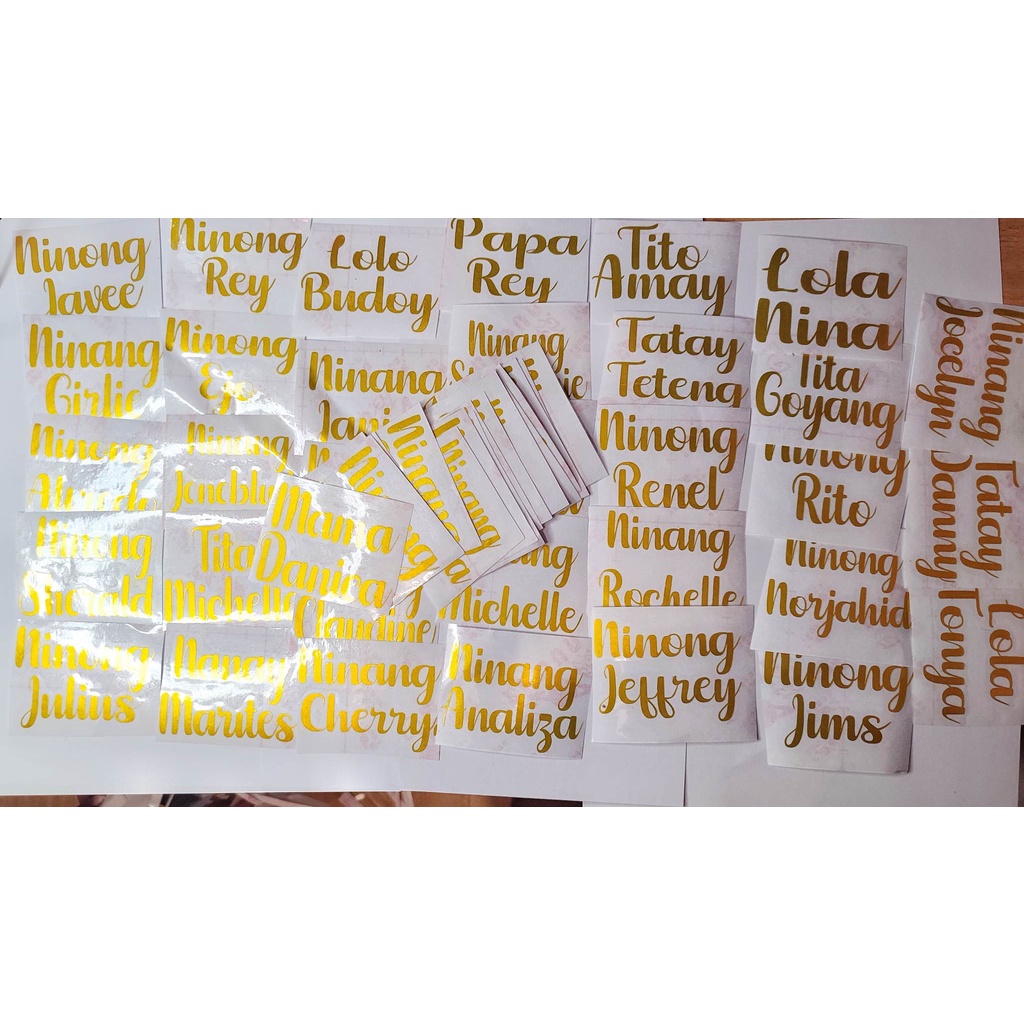 Ninong
Javee
Ninong
Rey
Lolo
Budoy
Papa
Rey
Tito
Amay
Lola
Nina
Ninang
Jocelyn
Ninang
Girlie
Ninong
Ejo
Ninang
Ninang
Tatay
Teteng
Tita
Goyang
Ninong
Ninong
Ninong
Renel
Ninong
Rito
Tatay
Danny
Ninong
Tita
Michelle
Mama
Danica
Claudine
Ninang
Ninang
Michelle
Ninang
Rochelle
Ninong
Norjahid
Lola
Tonya
Ninong
Julius
Nanay
Marites
Ninang
Cherry
Ninang
Analiza
Ninong
Jeffrey
Ninong
Jims